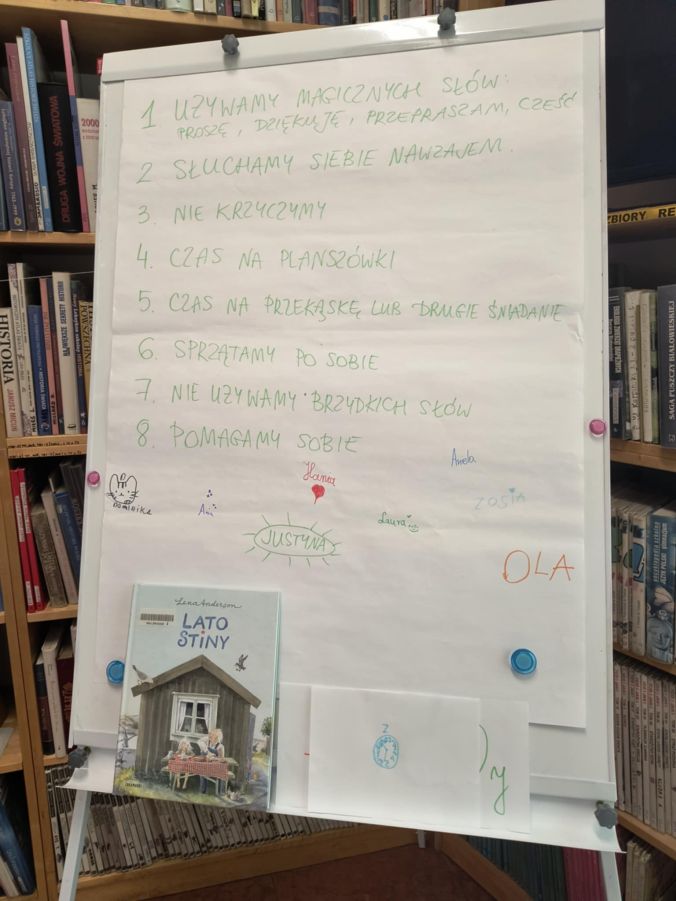 1 UŻYWAMY MAGICZNYCH SŁÓW:
PROSZĘ, DZIĘKUJĘ, PRZEPRASZAM, CZEŚĆ
2 SŁUCHAMY SIEBIE NAWZAJEM.
3. NIE KRZYCZYMY
4. CZAS NA PLANSZÓWKI
5. CZAS NA PRZEKĄSKĘ LUB DRUGIE ŚNIADANIE
6. SPRZĄTAMY PO SOBIE
7. NIE UŻYWAMY BRZYDKICH SŁÓW
8. POMAGAMY SOBIE
Hania
Aniela
Dominika
Ania
ZOSIA
Laura
JUSTYNA
OLA
Lena Anderson
LATO
STINY
Z
y
DRUGA WOJNA ŚWIATOWA
2000
HISTORIA
NAJWIĘKSZE SEKRETY HISTORII
ZBIORY RE
SAGA PUSZCZY BIAŁOWIESKIEJ